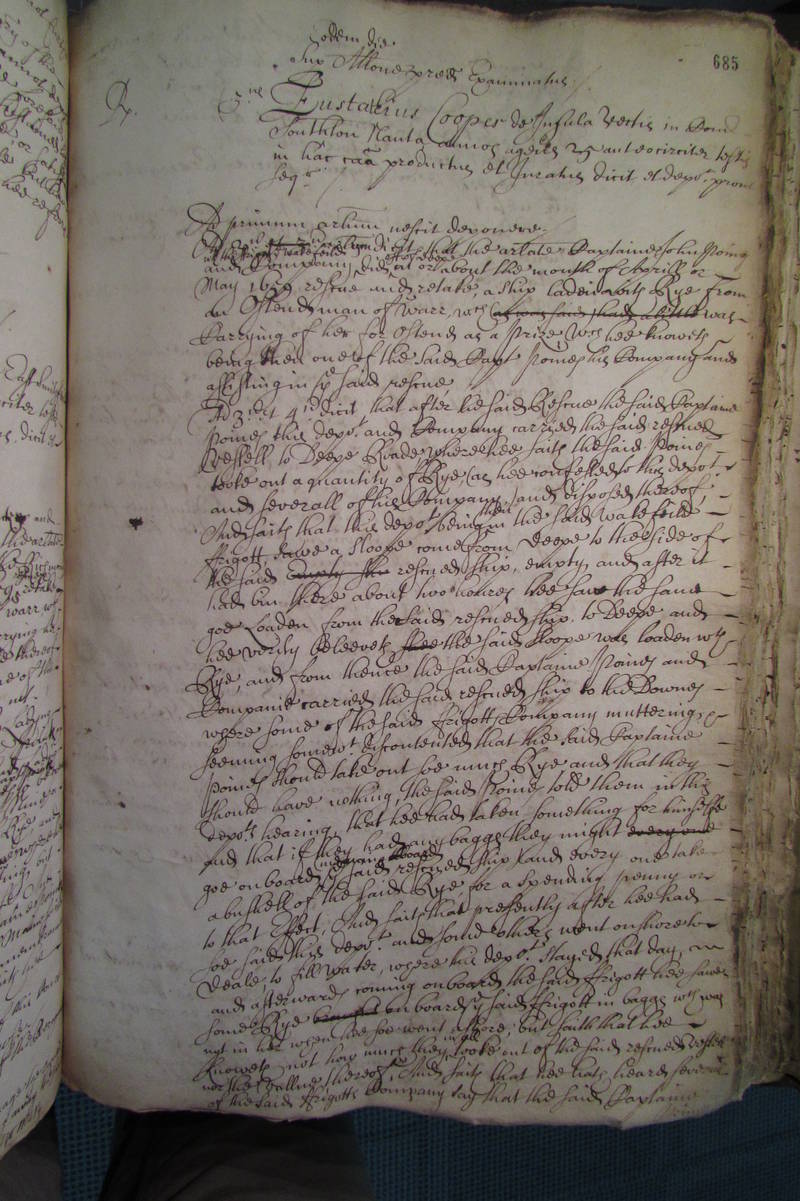 685
Eodem die
Sup Allone pred Examinatus
Rp.
3us
Eustatius Cooper de Insula Vectis in Com
Southton Nauta annos agens 25 aut eo circiter testis
in hac caa productus et Juratus dicit et depot prout
seqr
Ad primum artlum nescit deponere
Ad 2d dicit that the artate Captaine John Poines
and Company did at or about the month of Aprill or
May 1659 rescue and retake, a ship laden with Rye from
an Ostend man of Warr, wch (as was said had a little was
carrying of her for Ostend as a Prize Wch hee knoweth
being then one of the said Capt Poines his Company and
assisting in ye said rescue
Ad 3d et 4 dicit that after the said Rescue the said Captaine
Poines this depot and Company carried the said rescued
Vessell to Deepe Roade where hee saith the said Poines
tooke out a quantity of Rye (as hee confessed to this depot
and severall of his Company) and disposed thereof,
And saith that this depot being then in the said Wakefeild
ffrigott sawe a Sloope come from Deepe to the side of
the said Empty ship rescued ship, empty, and after it
had bin there about two houres hee saw the same
goe Loaden from the said rescued ship to Deepe and
hee verily beleeveth that the said Sloope was loaden wth
Rye, and from thence the said Captaine Poines and
Companie carried the said rescued ship to the Downes
where some of the said ffrigotts Company muttering &
seeming somewt discontented that the said Captaine
Poines should take out soe much Rye and that they
should have nothing, the said Poines told them in this
depots hearing, that hee had taken something for himselfe
and that if they had any baggs they might every one
goe on board ye said rescued ship and every one take
a bushell of the said Rye for a spending penny or
to that Effect, And saith that presently after hee had
soe said this depot and some others went on shore to
Deale, to fill water, where this depot stayed that day, an
and afterwards coming on board the said ffrigott hee sawe
some Rye brought on board ye said ffrigott in baggs wch was
not in her when hee soe went ashore, but saith that hee
knoweth not how much they in all tooke out of the said rescued vessell
nor the vallue thereof, And saith that hee hath heard severall
of the said ffrigotts Company say that the said Captaine